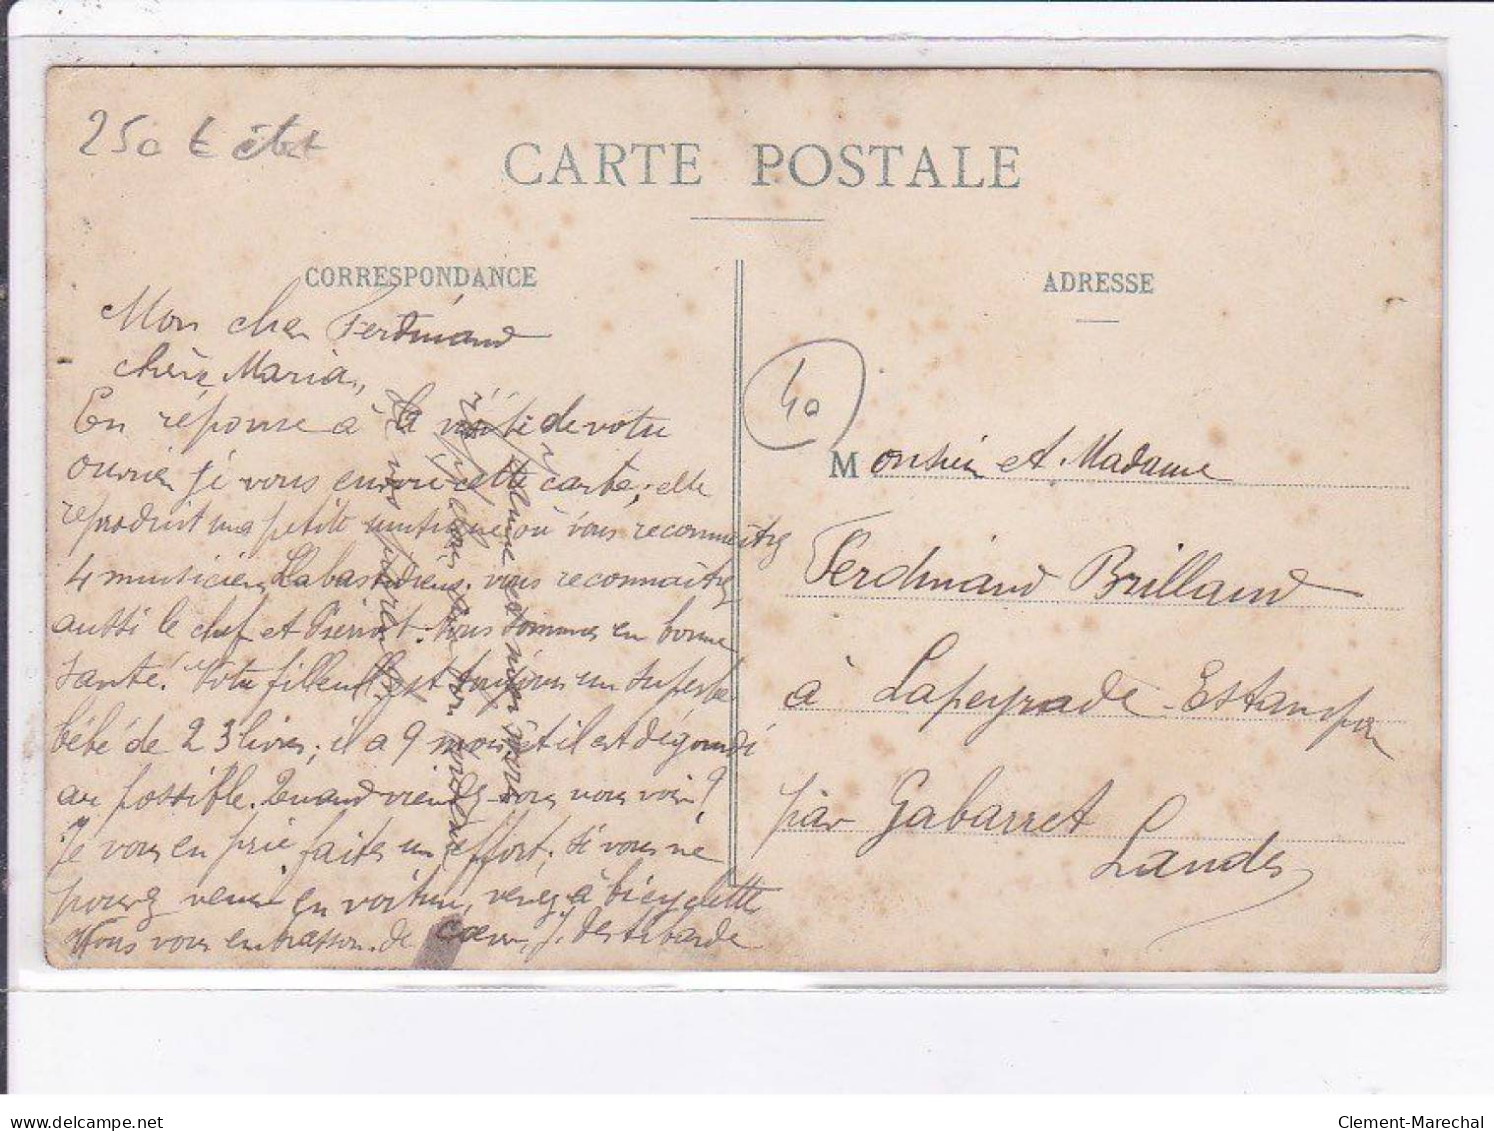 250 € état
CARTE POSTALE
CORRESPONDANCE
ADRESSE
Mon cher Ferdinand
chère Maria,
En réponse à la visite de votre
ouvrier je vous envoie cette carte; elle
reproduit ma petite musique où vous reconnaîtrez
4 musiciens Labastidiens. vous reconnaîtrez
aussi le chef et Pierrot. Nous sommes en bonne
santé. Votre filleul est toujours un superbe
bébé de 23 livres; il a 9 mois et il est dégourdi
au possible. Quand viendrez-vous nous voir?
Je vous en prie faites un effort; si vous ne
pouvez venir en voiture, venez à bicyclette
Nous vous embrassons de cœur, J. Destibarde
40
Monsieur et Madame
Ferdinand Brilland
à Lapeyrade-Estampon
par Gabarret
Landes
Clement-Marechal
delcampe.net